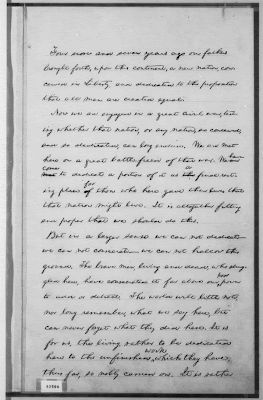 Four score and seven years ago our fathers
brought forth, upon this continent, a new nation, con-
ceived in Liberty, and dedicated to the proposition
that all men are created equal.
Now we are engaged in a great civil war, test-
ing whether that nation, or any nation, so conceived,
and so dedicated, can long endure. We are met
here on a great battle-field of that war. We have
come
to dedicate a portion of it as a final rest-
for
ing place of those who here gave their lives that
that nation might live. It is altogether fitting
and proper that we should do this.
But in a larger sense we can not dedicate
we can not consecrate we can not hallow this
ground. The brave men, living and dead, who strug-
gled here, have consecrated it far above our power
to add or detract. The world will little note,
nor long remember, what we say here, but
can never forget what they did here. It is
for us, the living, rather to be dedicated
work
here to the unfinished which they have,
thus far, so nobly carried on. It is rather